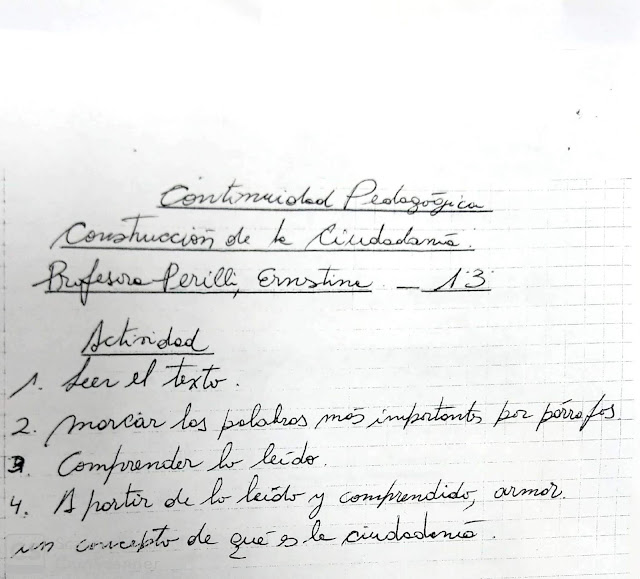 Continuidad Pedagógica
Construcción de la Ciudadanía.
Profesora Perilli, Ernestina. _ 1°3°
Actividad
1. Leer el texto.
2. Marcar las palabras más importantes por párrafos.
3. Comprender lo leído.
4. A partir de lo leído y comprendido, armar.
un concepto de que es la ciudadanía.